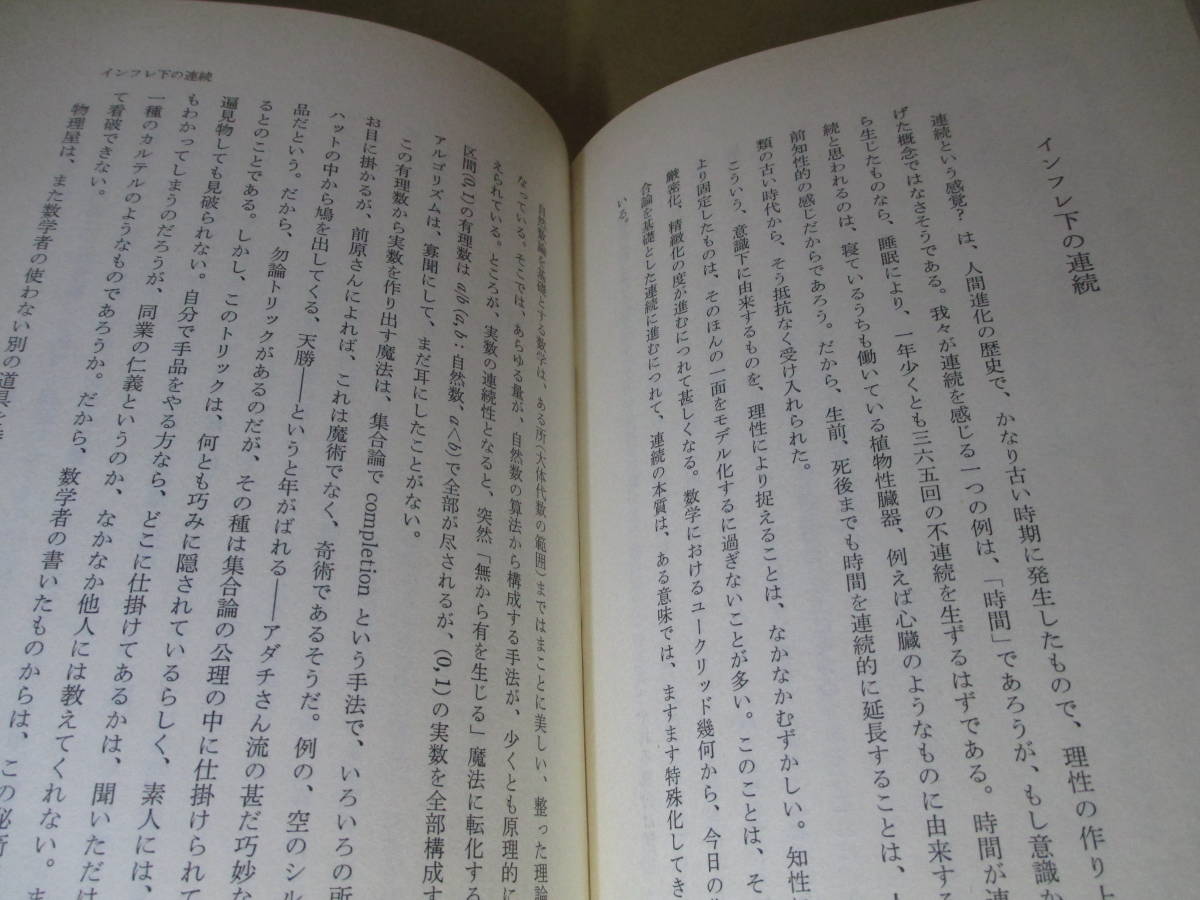 インフレ下の連続
連続という感覚？は、人間進化の歴史で、かなり古い時期に発生したもので、理性の作り上
げた概念ではなさそうである。我々が連続を感じる一つの例は、「時間」であろうが、もし意識か
ら生じたものなら、睡眠により、一年少くとも三六五回の不連続を生ずるはずである。時間が連
続と思われるのは、寝ているうちも働いている植物性臓器、例えば心臓のようなものに由来する
前知性的の感じだからであろう。だから、生前、死後までも時間を連続的に延長することは、
類の古い時代から、そう抵抗なく受け入れられた。
こういう、意識下に由来するものを、理性により捉えることは、なかなかむずかしい。知性
より固定したものは、そのほんの一面をモデル化するに過ぎないことが多い。このことは、そ
厳密化、精緻化の度が進むにつれて甚しくなる。数学におけるユークリッド幾何から、今日の
合論を基礎とした連続に進むにつれて、連続の本質は、ある意味では、ますます特殊化してき
いる。
インフレ下の連続
自然数論を基礎とする数学は、ある所(大体代数の範囲)まではまことに美しい、整った理論
なっている。そこでは、あらゆる量が、自然数の算法から構成する手法が、少くとも原理的に
えられている。ところが、実数の連続性となると、突然「無から有を生じる」魔法に転化する
区間(0, 1)の有理数は a/b (a, b : 自然数, a<b)で全部が尽されるが、(0, 1) の実数を全部構成す
アルゴリズムは、寡聞にして、まだ耳にしたことがない。
この有理数から実数を作り出す魔法は、集合論で completion という手法で、いろいろの所
お目に掛かるが、前原さんによれば、これは魔術でなく、奇術であるそうだ。例の、空のシル
ハットの中から鳩を出してくる、天勝――というと年がばれる――アダチさん流の甚だ巧妙な
品だという。だから、勿論トリックがあるのだが、その種は集合論の公理の中に仕掛けられて
るとのことである。しかし、このトリックは、何とも巧みに隠されているらしく、素人には、
遍見物しても見破られない。自分で手品をやる方なら、どこに仕掛けてあるかは、聞いただけ
もわかってしまうのだろうが、同業の仁義というのか、なかなか他人には教えてくれない。ま
一種のカルテルのようなものであろうか。だから、数学者の書いたものからは、この秘術
て看破できない。
物理屋は、また数学者の使わない別の道具を